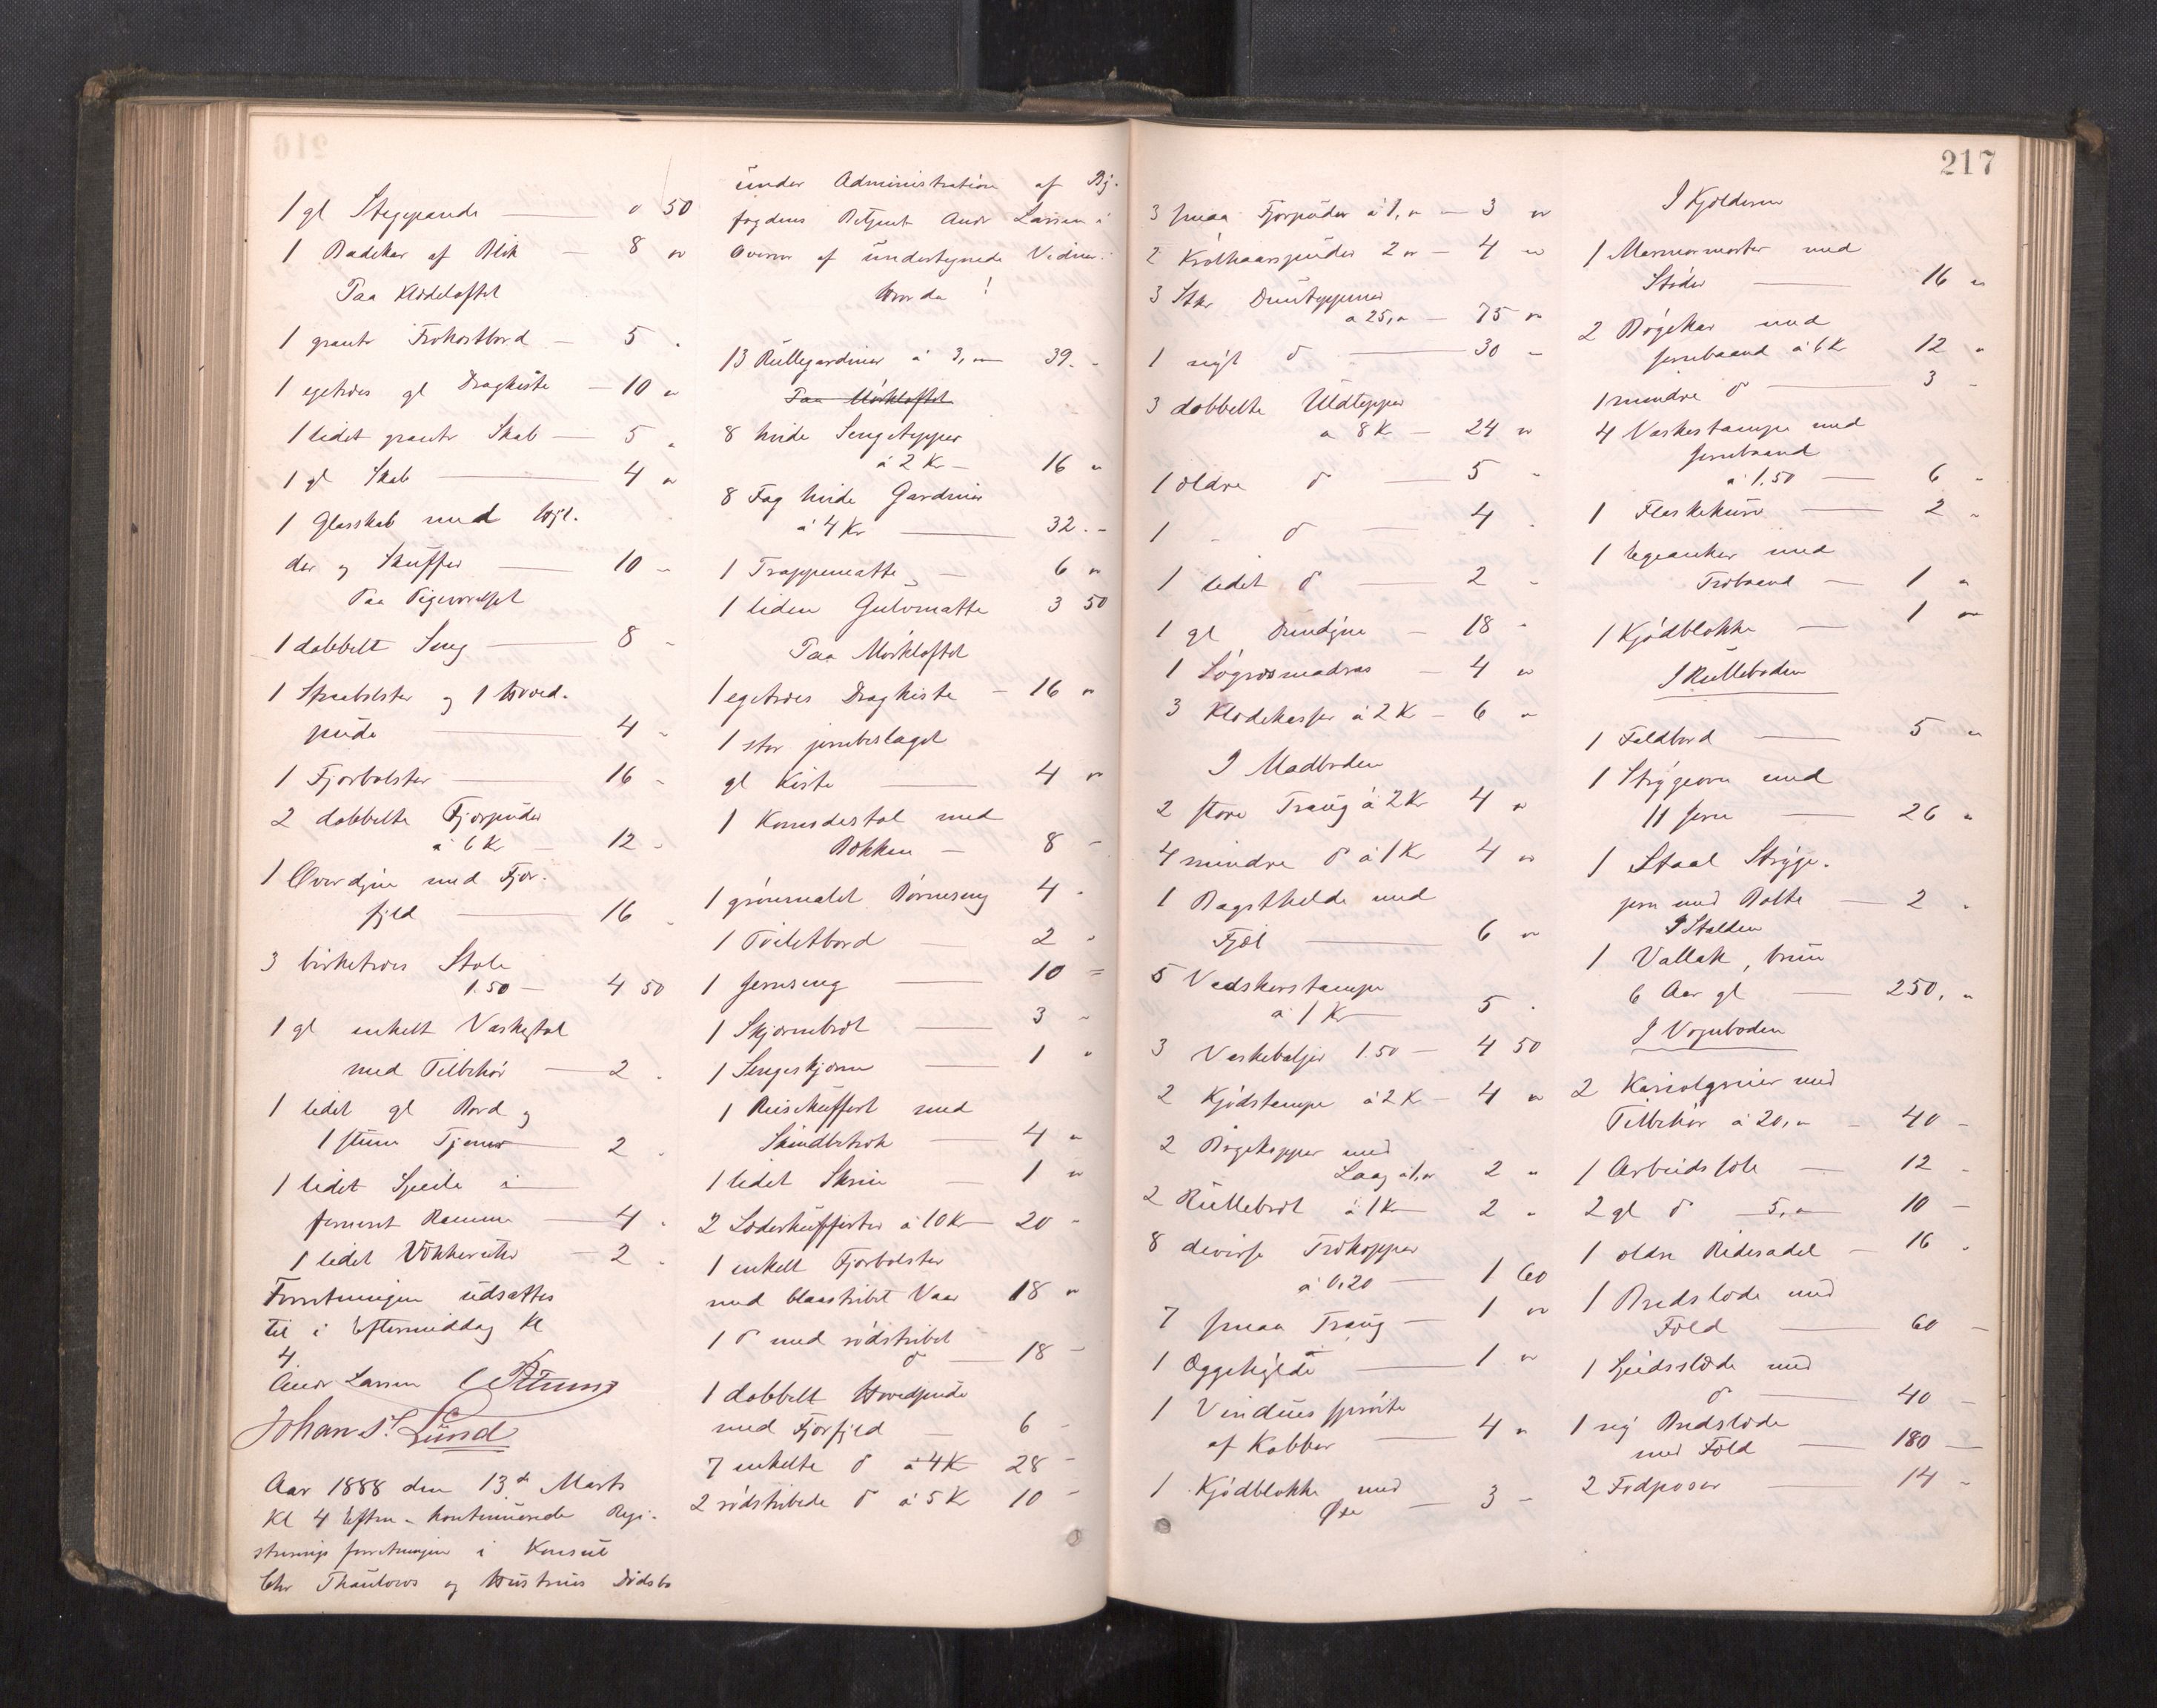 1 gl Stegepande — " 50
1 Badekar af Blik — 8 "
Paa Klædeloftet
1 grantr Frokostbord — 5 "
1 egetræes gl Dragkiste — 10 "
1 lidet grantr Skab — 5 "
1 gl Skab — 4 "
1 Glasskab med Hyl-
der og Skuffer — 10 "
Paa Pigeværelset
1 dobbelt Seng — 8 "
1 Straabolster og 1 Hoved-
pude — 4 "
1 Fjærbolster — 16 "
2 dobbelte Fjærpuder
á 6 Kr — 12 "
1 Overdyne med Fjær-
fyld — 16 "
3 birketræes Stole
1.50 — 4 50
1 gl enkelt Vaskestol
med Tilbehör — 2 "
1 lidet gl Bord og
1 stum Tjener — 2 "
1 lidet Speile i
ferneret Ramme — 4 "
1 lidet Vækkeruhr — 2 "
Forretningen udsattes
til i Eftermiddag Kl
4.
Andr Larsen
Johan S. Lund
Aar 1888 den 13de Marts
Kl 4 Eftm. kontinueredes Regi-
streringsforretningen i Konsul
Chr Thaulows og Hustrues Dödsbo
216
under Administration af By-
fogdens Betjent Andr Larsen i
Overvær af undertegnede Vidner.
Hvorda!
13 Rullegardiner á 3, " 39. "
Paa Mörkloftet
8 hvide Sengetepper
á 2 Kr — 16 "
8 Fag hvide Gardiner
á 4 Kr — 32. "
1 Trappematte — 6 "
1 liden Gulvmatte 3 50
Paa Mörkloftet
1 egetræes Dragkiste — 16 "
1 stor jernbeslaget
gl Kiste — 4 "
1 Komodestol med
Bækken — 8 "
1 grönmalet Börneseng 4 "
1 Toiletbord — 2 "
1 Jernseng — 10 =
1 Skjærmbræt — 3 "
1 Sengeskjærm — 1 "
1 Reisekuffert med
Skindbetræk — 4 "
1 lidet Skrin — 1 "
2 Læderkufferter á 10 Kr — 20 "
1 enkelt Fjærbolster
med blaastribet Vaar 18 "
1 do med rödstribet
do — 18 "
1 dobbelt Hovedpude
med Fjærfyld — 6 "
7 enkelte do á 4 Kr 28 "
2 rödstribede do á 5 Kr 10 "
217
3 smaa Fjærpuder á 1, " — 3 "
2 Krölhaarspuder 2 " — 4 "
3 Stkr Duntepper
a 25, " — 75 "
1 nyt do — 30 "
3 dobbelte Uldtepper
a 8 Kr — 24 "
1 ældre do — 5 "
1 " do — 4 "
1 lidet do — 2 "
1 gl Dundyne — 18 "
1 Sögræsmadras — 4 "
3 Klædekasser á 2 Kr — 6 "
I Madboden
2 store Traug á 2 Kr 4 "
4 mindre do á 1 Kr 4 "
1 Bagsthelde med
Fjæl — 6 "
5 Vadskerstampe
á 1 Kr — 5 "
3 Vaskebaljer 1.50 — 4 50
2 Kjödstampe á 2 Kr — 4 "
2 Bögekopper med
Laag á 1, " 2 "
2 Rullebræt á 1 Kr — 2 "
8 diverse Trækopper
á 0.20 — 1 60
7 smaa Traug — 1 "
1 Æggehylde — 1 "
1 Vindusspröite
af Kobber — 4 "
1 Kjödblokke med
Øxe — 3 "
I Kjælderen
1 Marmormorter med
Stöder — 16 "
2 Bögekar med
Jernbaand á 6 Kr 12 "
1 mindre do — 3 "
4 Vaskestampe med
Jernbaand
á 1.50 — 6 "
1 Flaskekurv — 2 "
1 Egeanker med
Træbaand — 1 "
1 Kjödblokke — 1 "
I Rulleboden
1 Foldbord — 5 "
1 Strygeovn med
11 Jern — 26 "
1 Staal Stryge-
jern med Bolte — 2 "
I Stalden
1 Vallak, brun
6 Aar gl — 250, "
I Vognboden
2 Kariolgreier med
Tilbehör á 20, " — 40 "
1 Arbeidssæle — 12 "
2 gl do — 5, " — 10 "
1 ældre Ridesadel — 16 "
1 Bredslæde med
Fæld — 60 "
1 Spidsslæde med
do — 40 "
1 ny Bredslæde
med Fæld — 180 "
2 Fodposer — 14 "